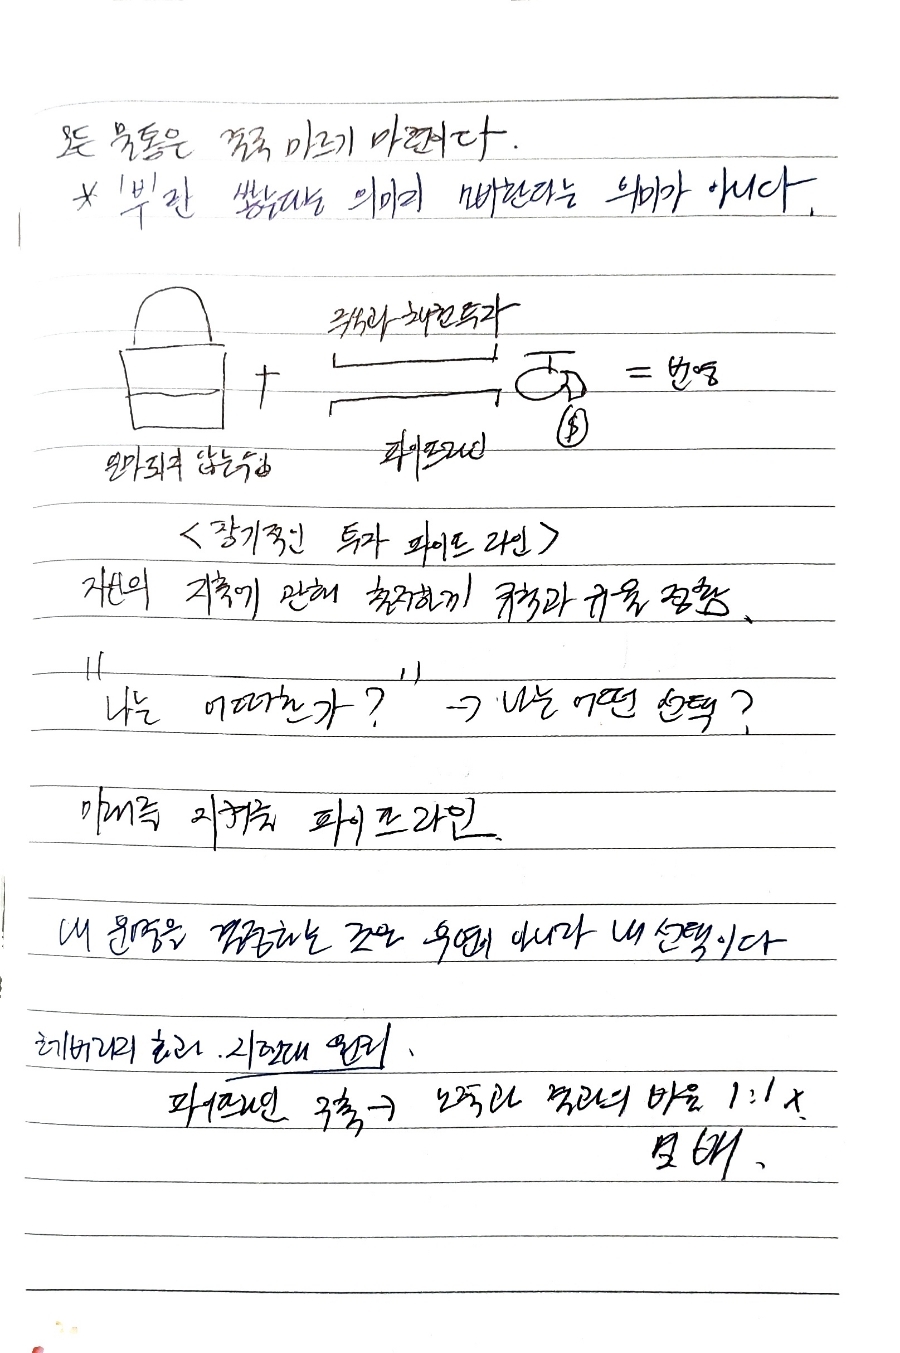 모든 물통은 결국 마르기 마련이다.
* '부'란 쌓는다는 의미지 소비한다는 의미가 아니다.
주식과 채권투자
+ = 번영
$
마르지 않는 수입
파이프라인
<장기적인 투자 파이프 라인>
자신의 저축에 관해 철저하게 규칙과 규율 정함.
"나는 어떠한가?" → 나는 어떤 선택?
파이프라인.
내 운명을 결정하는 것은 우연이 아니라 내 선택이다
레버리지 효과. 지렛대 원리.
파이프라인 구축→ 노력과 결과의 비율 1:1 x.
몇 배.